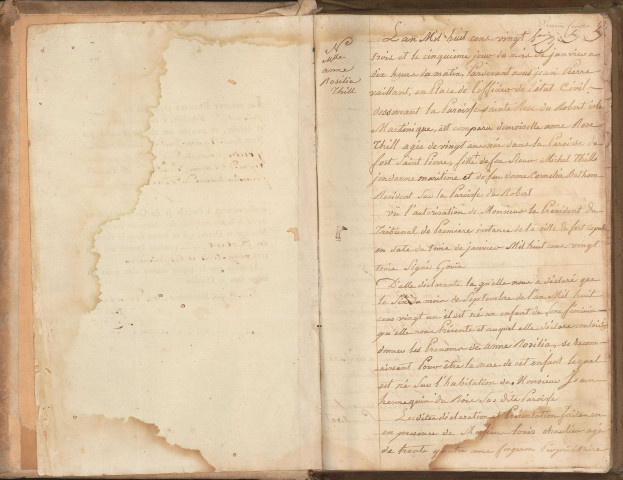 No
Mlle
anne
Rosilia
Thill
L'an Mil huit cens vingt
trois et le cinquieme jour du mois de janvier a
dix heures du matin, Pardevant nous jean Pierre
vaillant, en place de l'officier de l'état Civil
desservant la Paroisse Sainte Rose du Robert isle
Martinique, est comparu demoiselle anne Rose
Thill agée de vingt ans née dans la Paroisse du
fort Saint Pierre, fille de feu Sieur Michel Thill
gendarme maritime et de feu dame Cornelia
Résident Sur la Paroisse du Robert
vû l'autorisation de Monsieur le Président du
Tribunal de Premiere instance de la ville du fort Royal
en date du trois de janvier Mil huit cens vingt
trois Signé
Laquelle déclarante la qu'elle nous a déclaré que
le Six du mois de Septembre de l'an Mil huit
cens vingt un il est né un enfant du Sexe féminin
qu'elle nous Présente et auquel elle déclare vouloir
donner les Prénoms de anne Rosilia, se reconn
aissant Pour être la mere de cet enfant lequel
est né Sur l'habitation de Monsieur Jean
hennequin du Bois Sus dite Paroisse
Les dites déclaration et Présentation faites en
en presence de Monsieur Louis chevalier agé
de trente quatre ans Propriétaire